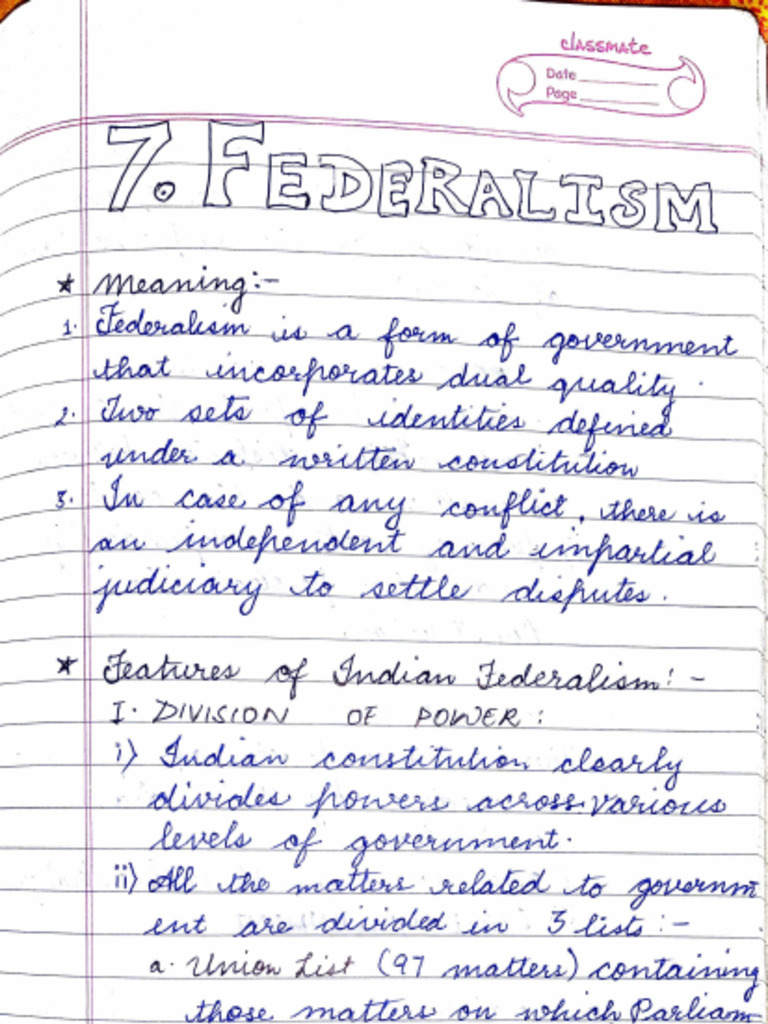 classmate
Date
Page
7. FEDERALISM
★ Meaning:-
1. Federalism is a form of government
that incorporates dual quality.
2. Two sets of identities defined
under a written constitution
3. In case of any conflict, there is
an independent and impartial
judiciary to settle disputes.
★ Features of Indian Federalism:-
I. DIVISION OF POWER:
i) Indian constitution clearly
divides powers across various
levels of government.
ii) All the matters related to governm
ent are divided in 3 lists:-
a. Union List (97 matters) containing
those matters on which Parliam